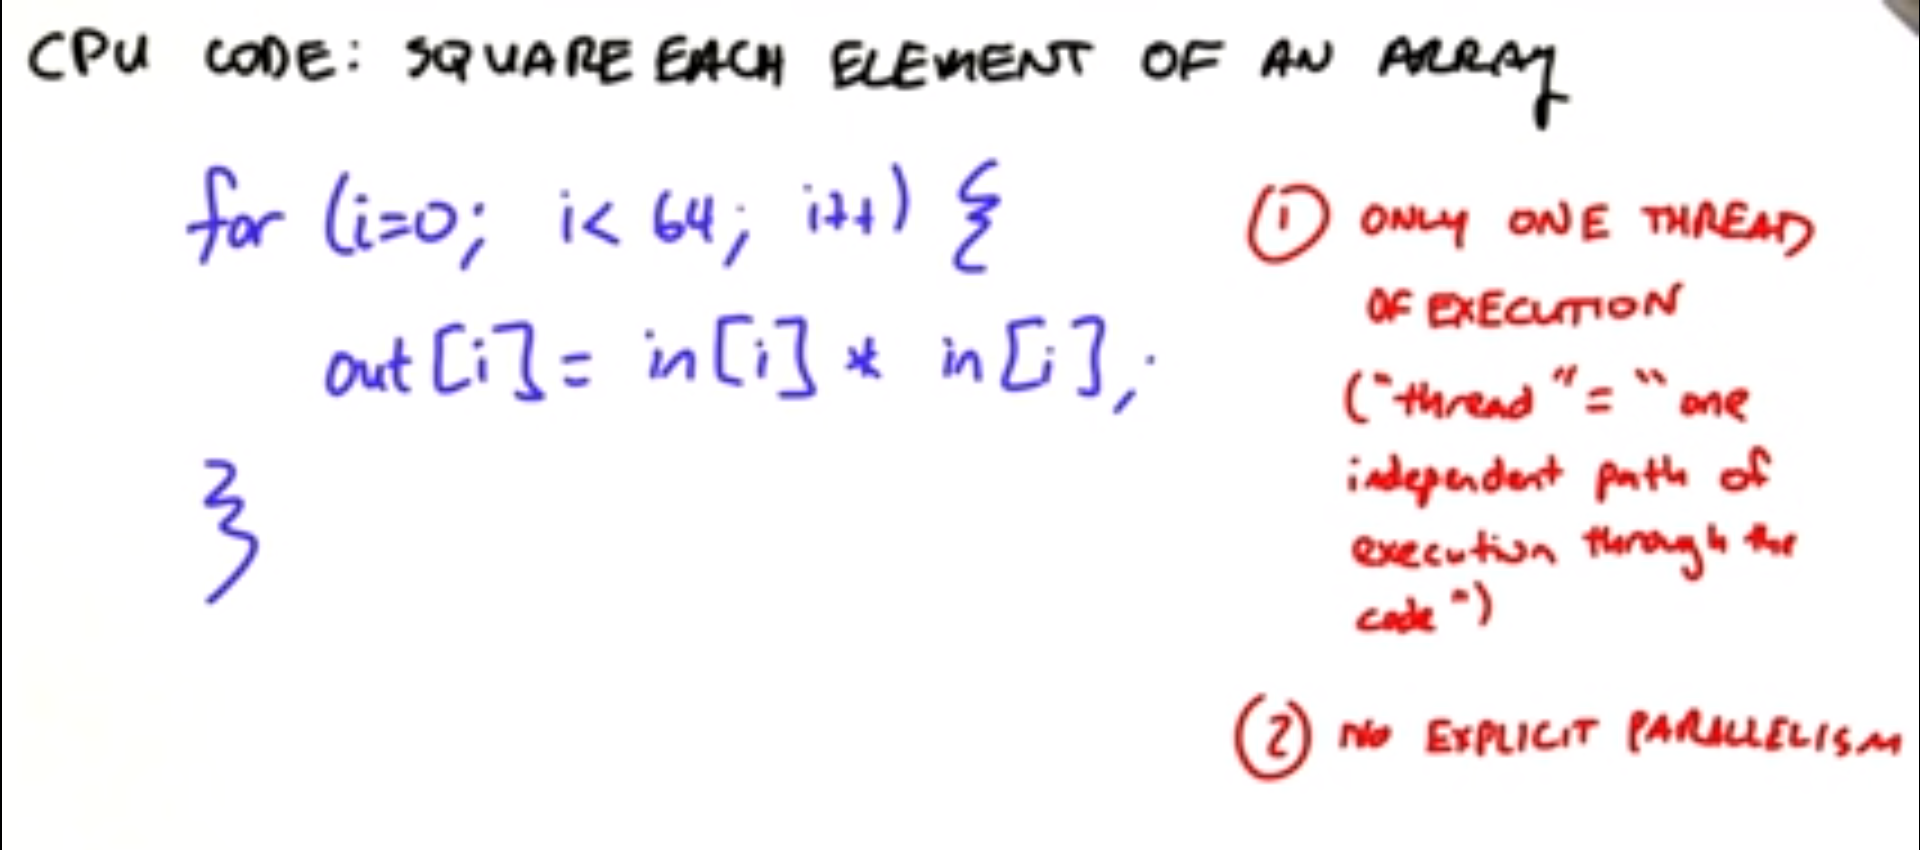 CPU CODE: SQUARE EACH ELEMENT OF AN ARRAY
for (i=0; i< 64; i++) {
out[i] = in[i] * in[i];
}
① ONLY ONE THREAD
OF EXECUTION
("thread" = "one
independent path of
execution through the
code")
② NO EXPLICIT PARALLELISM